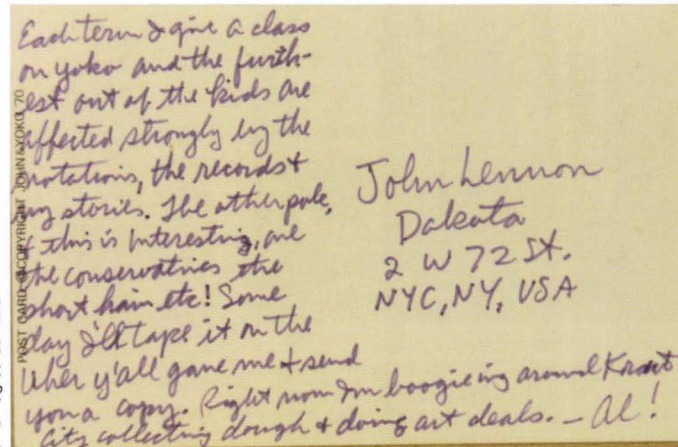 Each term I give a class
on yoko and the furth-
est out of the kids are
affected strongly by the
notations, the records &
my stories. The other pole,
& this is interesting, are
the conservatives the
short hair etc! Some
day I'll tape it on the
Uher y'all gave me & send
you a copy. Right now I'm boogieing around Kraut
City collecting dough & doing art deals. — Al!
John Lennon
Dakota
2 W 72 St.
NYC, NY, USA
POST CARD © COPYRIGHT JOHN & YOKO '70